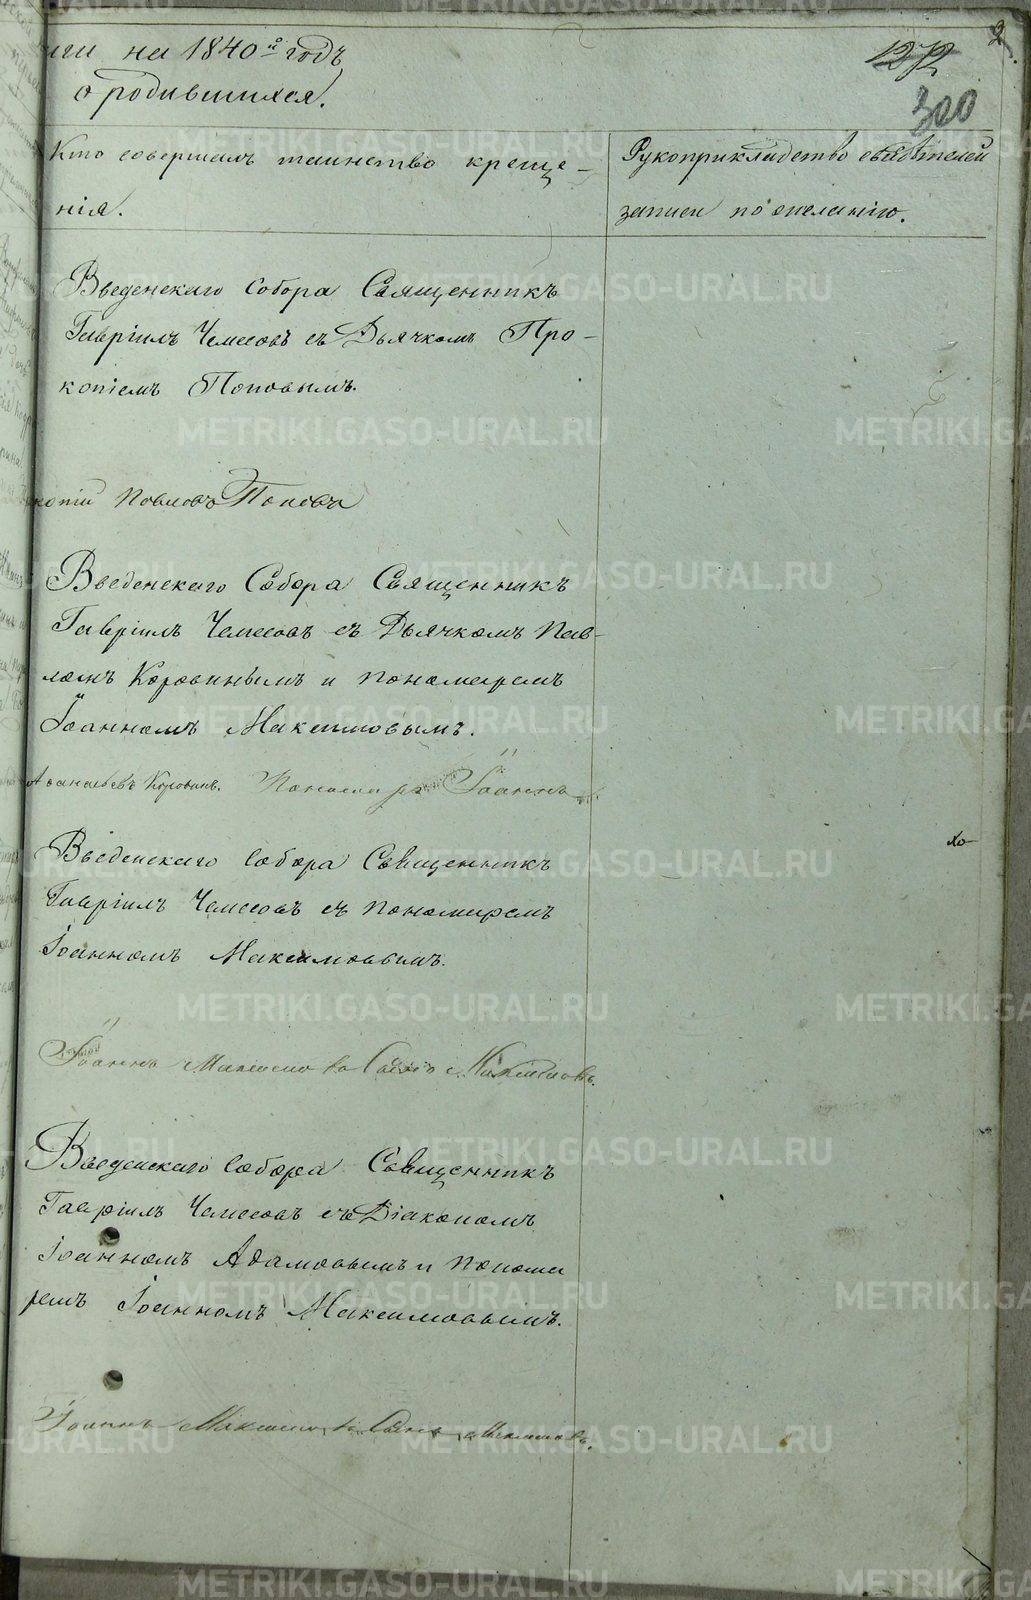 2.
ги на 1840й годъ
1272
о родившихся.
300
Кто совершалъ таинство креще-
нія.
Рукоприкладство свидѣтелей
записи по желанію.
Введенскаго Собора Священникъ
Гавріилъ Чемесовъ съ Дьячкомъ Про-
копіемъ Поповымъ.
копій Павловъ Поповъ
Введенскаго Собора Священникъ
Гавріилъ Чемесовъ съ Дьячкомъ Пав-
ломъ Коровинымъ и пономаремъ
Іоанномъ Максимовымъ.
Аѳанасьевъ Коровинъ. Пономарь Іоаннъ
Введенскаго Собора Священникъ
Гавріилъ Чемесовъ съ пономаремъ
Іоанномъ Максимовымъ.
Іоаннъ Максимовъ
Введенскаго Собора Священникъ
Гавріилъ Чемесовъ съ Діакономъ
Іоанномъ Адамовымъ и понома
ремъ Іоанномъ Максимовымъ.
Іоаннъ Максимовъ
METRIKI.GASO-URAL.RU